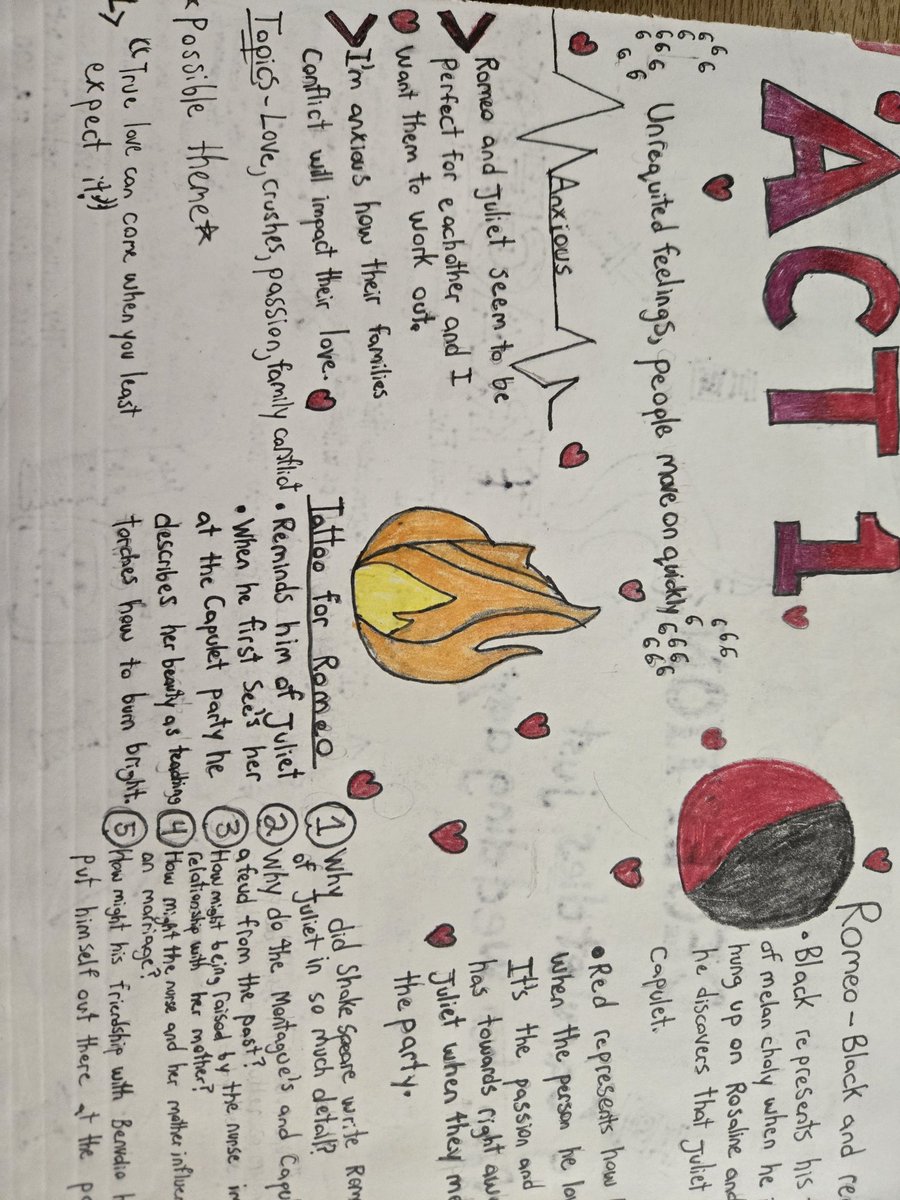 ACT 1
Unrequited feelings, people move on quickly
Anxious
Romeo and Juliet seem to be
perfect for eachother and I
want them to work out.
I'm anxious how their families
conflict will impact their love.
Topics - Love, crushes, passion, family conflict
*Possible theme*
"True love can come when you least
expect it."
Tattoo for Romeo
• Reminds him of Juliet
• When he first see's her
at the Capulet party he
describes her beauty as teaching
torches how to burn bright.
Romeo - Black and re
• Black represents his
of melancholy when he
hung up on Rosaline and
he discovers that Juliet
Capulet.
• Red represents how
when the person he lo
It's the passion and
has towards right aw
Juliet when they me
the party.
① Why did Shakespeare write Rom
of Juliet in so much detail?
② Why do the Montague's and Capu
a feud from the past?
③ How might being raised by the nurse im
relationship with her mother?
④ How might the nurse and her mother influe
on marriage?
⑤ How might his friendship with Benvolio h
put himself out there at the pa